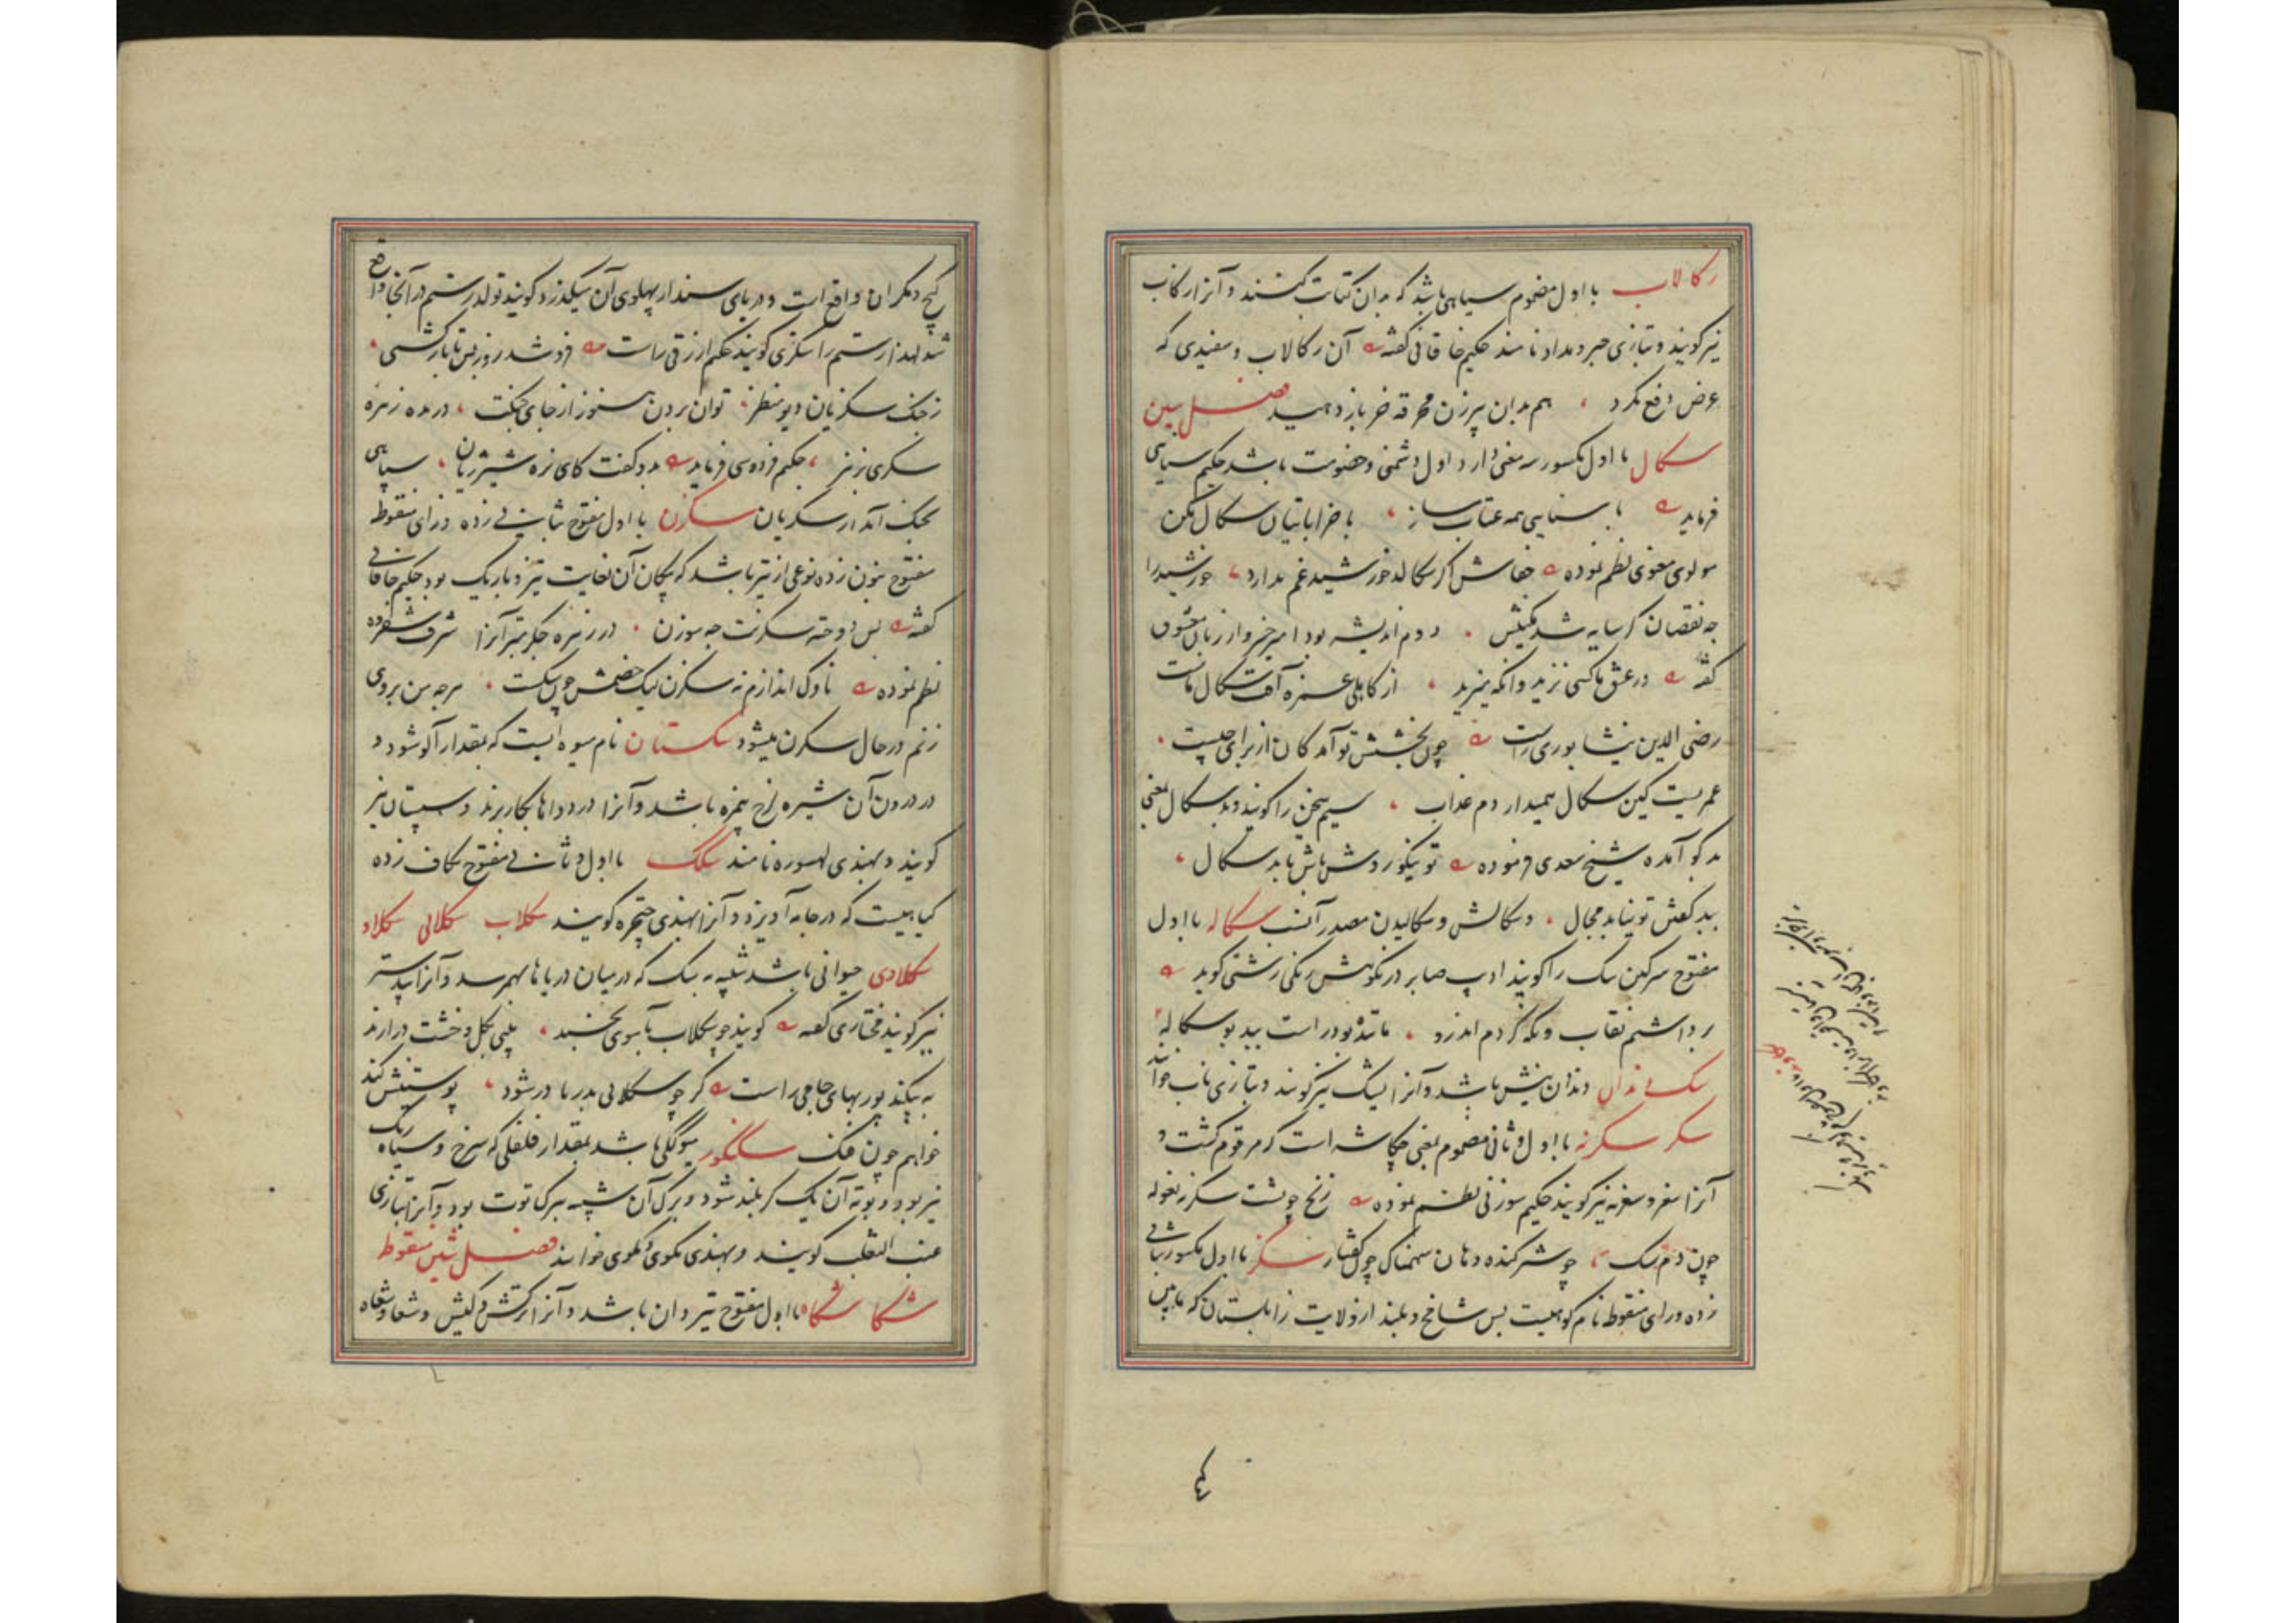 رکالاب با اول مضموم سیاهی باشد که بدان کتابت کنند و آنرا رکاب
نیز گویند و بتازی حبر و مداد نامند حکیم خاقانی گفته آن رکالاب و سفیدی که
عرض دفع نکرد هم بدان پیرزن مخرقه خر باز دهید فصل سین
سکال با اول مکسور سه معنی دارد اول دشمنی و خصومت باشد حکیم سنایی
فرماید با سنایی همه عتاب ساز با خراباتیان سکال مکن
مولوی معنوی نظم نموده خفاش اگر سکالد خورشید غم ندارد خورشید را
چه نقصان گر سایه شد نکیش دوم اندیشه بود امیر خسرو از زبان معشوق
گفته در عشق ما کسی نزید وانکه میزید از کاهلی غمزه آفت سکال ماست
رضی الدین نیشابوری راست چون بخشش تو آمد کان از برای چیست
عمریست کین سکال همیداردم عذاب سیم سخن را گویند و بد سکال بمعنی
بد گو آمده شیخ سعدی فرموده تو نیکو روش باش تا بد سکال
ببد گفتن تو نیابد مجال و سکالش و سکالیدن مصدر آنست سکاله با اول
مفتوح سرگین سک را گویند ادیب صابر در نکوهش رنگی زشتی گوید
برداشتم نقاب و نگه کردم اندرو مانندهٔ بود راست بید بو سکاله
سک دندان دندان نیش باشد و آنرا یشک نیز گویند و بتازی ناب خوانند
سکر سکرنه با اول و ثانی مضموم بمعنی چکاشه است که مرقوم گشت و
آنرا سغر و سغرنه نیز گویند حکیم سوزنی نظم نموده زنخ چو پشت سکرنه بغوله
چون دم سک چو شیر گنده دهان سهمناک چون کفتار سکز با اول مکسور بثانی
زده و زای منقوطه نام کوهیست بس شامخ و بلند از ولایت زابلستان که مابین
کیچ و مکران واقع است و دریای سند از پهلوی آن میگذرد گویند تولد رستم در آنجا واقع
شد لهذا رستم را سکزی گویند حکیم ازرقی راست فرو شد روز بس تا بار گشتی
ز جنگ سکزیان دیو منظر توان بردن هنوز از جای جنگت درنده زهره
سکزی زبر حکیم فردوسی فرماید بدو گفت کای نره شیر ژیان سپاهی
بجنگ آمد از سکزیان سکزن با اول مفتوح بثانی زده و زای منقوطه
مفتوح بنون زده نوعی از تیر باشد که پیکان آن بغایت تیز و باریک بود حکیم خاقانی
گفته بس دوخته سکزنت چه سوزن در زهره جگر مبترانرا شرف شفروه
نظم نموده ناوک اندازم نه سکزن لیک خصمش چون سکست هرچه من بروی
زنم در حال سکزن میشود سکستان نام میوه ایست که بمقدار آلو شود و
در درون آن شیره لزج بیمزه باشد و آنرا در دواها بکار برند و سپستان نیز
گویند و بهندی لهسوره نامند سکک با اول و ثانی مفتوح بکاف زده
گیاهیست که در جامه آویزد و آنرا بهندی چچره گویند سکلاب سکلابی سکلاو
سکلاوی حیوانی باشد شبیه به سک که در میان دریاها بهم رسد و آنرا بیدستر
نیز گویند مختاری گفته گویند چو سکلاب بآسوی بخسبد پلپی بگل و خشت در ارند
به بیکند پور بهای جامی راست گر چو سکلابی بدریا در شود پوستینش کند
خواهم چون فنک سکنگور میوگکی باشد بمقدار فلفلی که سرخ و سیاه رنگ
نیز بود و بوته آن یک گز بلند شود و برگ آن شبیه ببرگ توت بود و آنرا بتازی
عنب الثعلب گویند و بهندی مکوی و کوی خوانند فصل شین منقوطه
شکا شکاه با اول مفتوح تیردان باشد و آنرا ترکش و کیش و شغا و شغاه